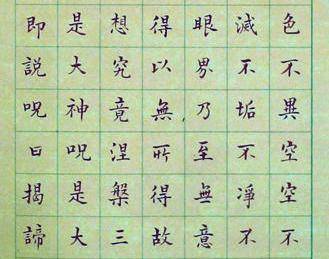 色不異空空不
減不垢不淨不
眼界乃至無意
得以無所得故
想究竟涅槃三
是大神咒是大
即說咒曰揭諦